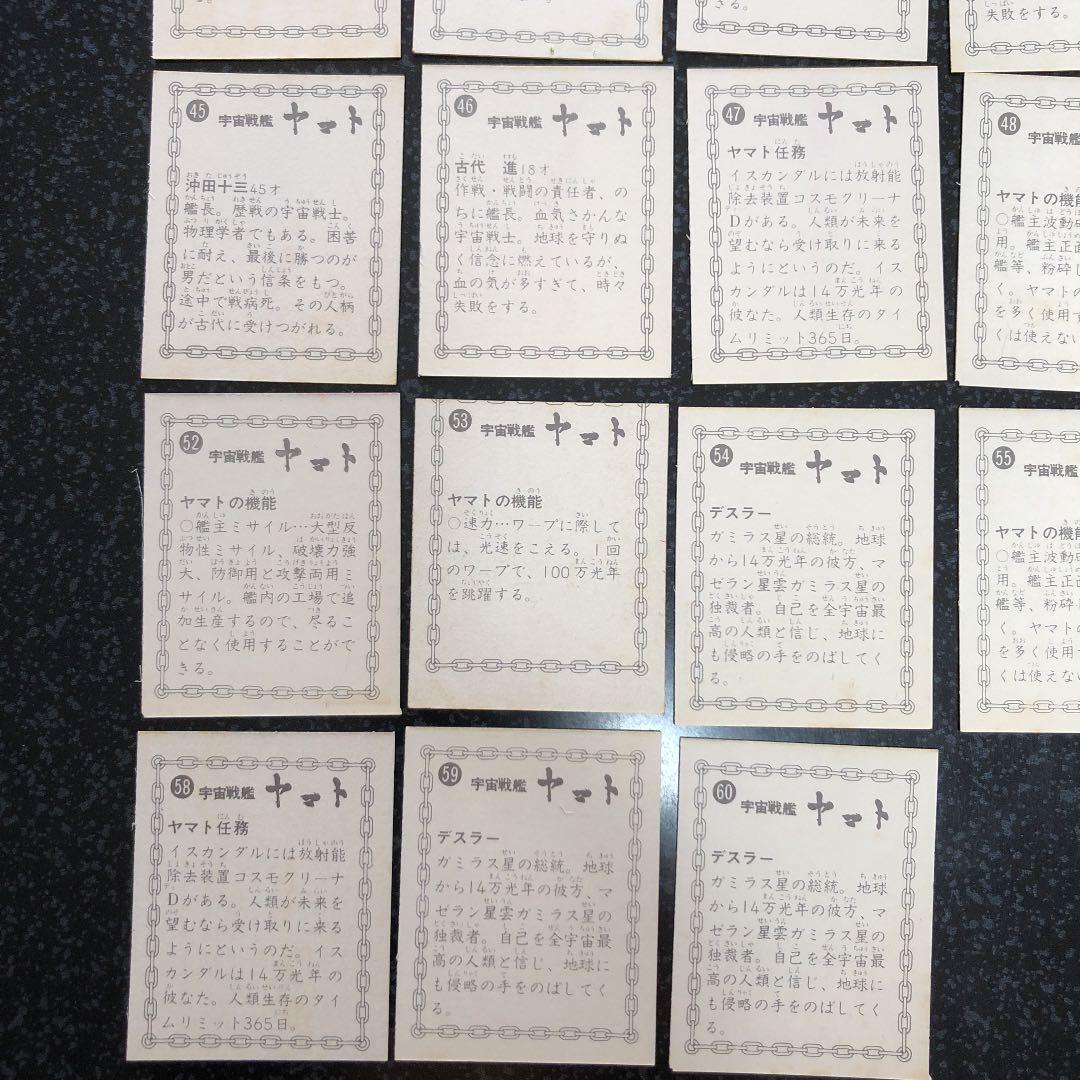 きる。
失敗をする。
45 宇宙戦艦 ヤマト
沖田十三45才
艦長。歴戦の宇宙戦士。
物理学者でもある。困苦
に耐え、最後に勝つのが
男だという信条をもつ。
途中で戦病死。その人柄
が古代に受けつがれる。
46 宇宙戦艦 ヤマト
古代 進18才
作戦・戦闘の責任者、の
ちに艦長。血気さかんな
宇宙戦士。地球を守りぬ
く信念に燃えているが、
血の気が多すぎて、時々
失敗をする。
47 宇宙戦艦 ヤマト
ヤマト任務
イスカンダルには放射能
除去装置コスモクリーナ
Dがある。人類が未来を
望むなら受け取りに来る
ようにというのだ。イス
カンダルは14万光年の
彼なた。人類生存のタイ
ムリミット365日。
48 宇宙戦艦
ヤマトの機能
○艦主波動砲
用。艦主正面
艦等、粉砕し
く。ヤマトの
を多く使用す
くは使えない
52 宇宙戦艦 ヤマト
ヤマトの機能
○艦主ミサイル…大型反
物性ミサイル、破壊力強
大、防御用と攻撃両用ミ
サイル。艦内の工場で追
加生産するので、尽るこ
となく使用することがで
きる。
53 宇宙戦艦 ヤマト
ヤマトの機能
○速力…ワープに際して
は、光速をこえる。1回
のワープで、100万光年
を跳躍する。
54 宇宙戦艦 ヤマト
デスラー
ガミラス星の総統。地球
から14万光年の彼方、マ
ゼラン星雲ガミラス星の
独裁者。自己を全宇宙最
高の人類と信じ、地球に
も侵略の手をのばしてく
る。
55 宇宙戦艦
ヤマトの機能
○艦主波動砲
用。艦主正面
艦等、粉砕し
く。ヤマトの
を多く使用す
くは使えない
58 宇宙戦艦 ヤマト
ヤマト任務
イスカンダルには放射能
除去装置コスモクリーナ
Dがある。人類が未来を
望むなら受け取りに来る
ようにというのだ。イス
カンダルは14万光年の
彼なた。人類生存のタイ
ムリミット365日。
59 宇宙戦艦 ヤマト
デスラー
ガミラス星の総統。地球
から14万光年の彼方、マ
ゼラン星雲ガミラス星の
独裁者。自己を全宇宙最
高の人類と信じ、地球に
も侵略の手をのばしてく
る。
60 宇宙戦艦 ヤマト
デスラー
ガミラス星の総統。地球
から14万光年の彼方、マ
ゼラン星雲ガミラス星の
独裁者。自己を全宇宙最
高の人類と信じ、地球に
も侵略の手をのばしてく
る。